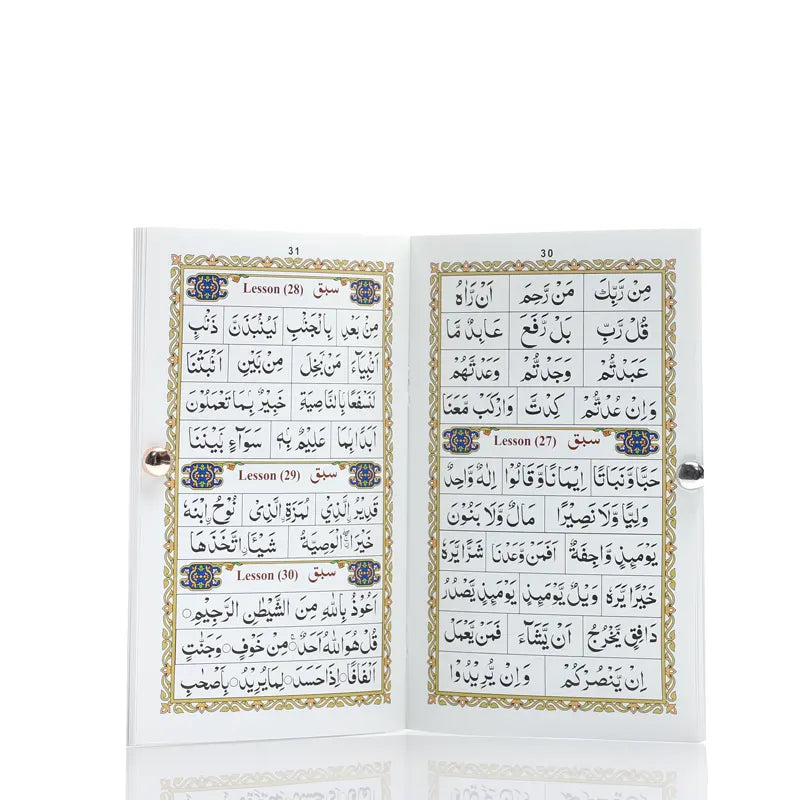 30
مِنْ رَّبِّكَ مَنْ رَّحِمَ اَنْ رَّاٰهُ
قُلْ رَّبِّ بَلْ رَّفَعَ عَابِدٌ مَّا
عَبَدْتُّمْ وَجَدْتُّمْ وَعَدْتَّهُمْ
وَاِنْ عُدْتُّمْ كِدْتَّ وَارْكَبْ مَّعَنَا
Lesson (27) سبق
حَبًّا وَّنَبَاتًا اِيْمَانًا وَّقَالُوْا اِلٰهٌ وَّاحِدٌ
وَلِيًّا وَّلَا نَصِيْرًا مَالٌ وَّلَا بَنُوْنَ
يَوْمَىِٕذٍ وَّاجِفَةٌ اَفَمَنْ وَّعَدْنَا شَرًّا يَّرَهٗ
خَيْرًا يَّرَهٗ وَيْلٌ يَّوْمَىِٕذٍ يَوْمَىِٕذٍ يَّصْدُرُ
دَافِقٍ يَّخْرُجُ اَنْ يَّشَآءَ فَمَنْ يَّعْمَلْ
اِنْ يَّنْصُرْكُمْ وَاِنْ يُّرِيْدُوْا
31
Lesson (28) سبق
مِنْۢ بَعْدِ بِالْجَنْۢبِ لَيُنْۢبَذَنَّ ذَنْۢبٍ
اَنْۢبِيَآءَ مَنْۢ بَخِلَ مِنْۢ بَيْنِ اَنْۢبَتْنَا
لَنَسْفَعًۢا بِالنَّاصِيَةِ خَبِيْرٌۢ بِمَا تَعْمَلُوْنَ
اَبَدًۢا بِمَا عَلِيْمٌۢ بِهٖ سَوَآءٍۢ بَيْنَنَا
Lesson (29) سبق
قَدِيْرُ ۨالَّذِيْ لُمَزَةِ ۨالَّذِيْ نُوْحُ ۨابْنَهٗ
خَيْرَا ۨالْوَصِيَّةُ شَيْـًٔا ۨاتَّخَذَهَا
Lesson (30) سبق
اَعُوْذُ بِاللّٰهِ مِنَ الشَّيْطٰنِ الرَّجِيْمِ○
قُلْ هُوَ اللّٰهُ اَحَدٌ○ مِنْ خَوْفٍ○ وَجَنّٰتٍ
اَلْفَافًا○ اِذَا حَسَدَ○ لِمَا يُرِيْدُ○ بِاَصْحٰبِ